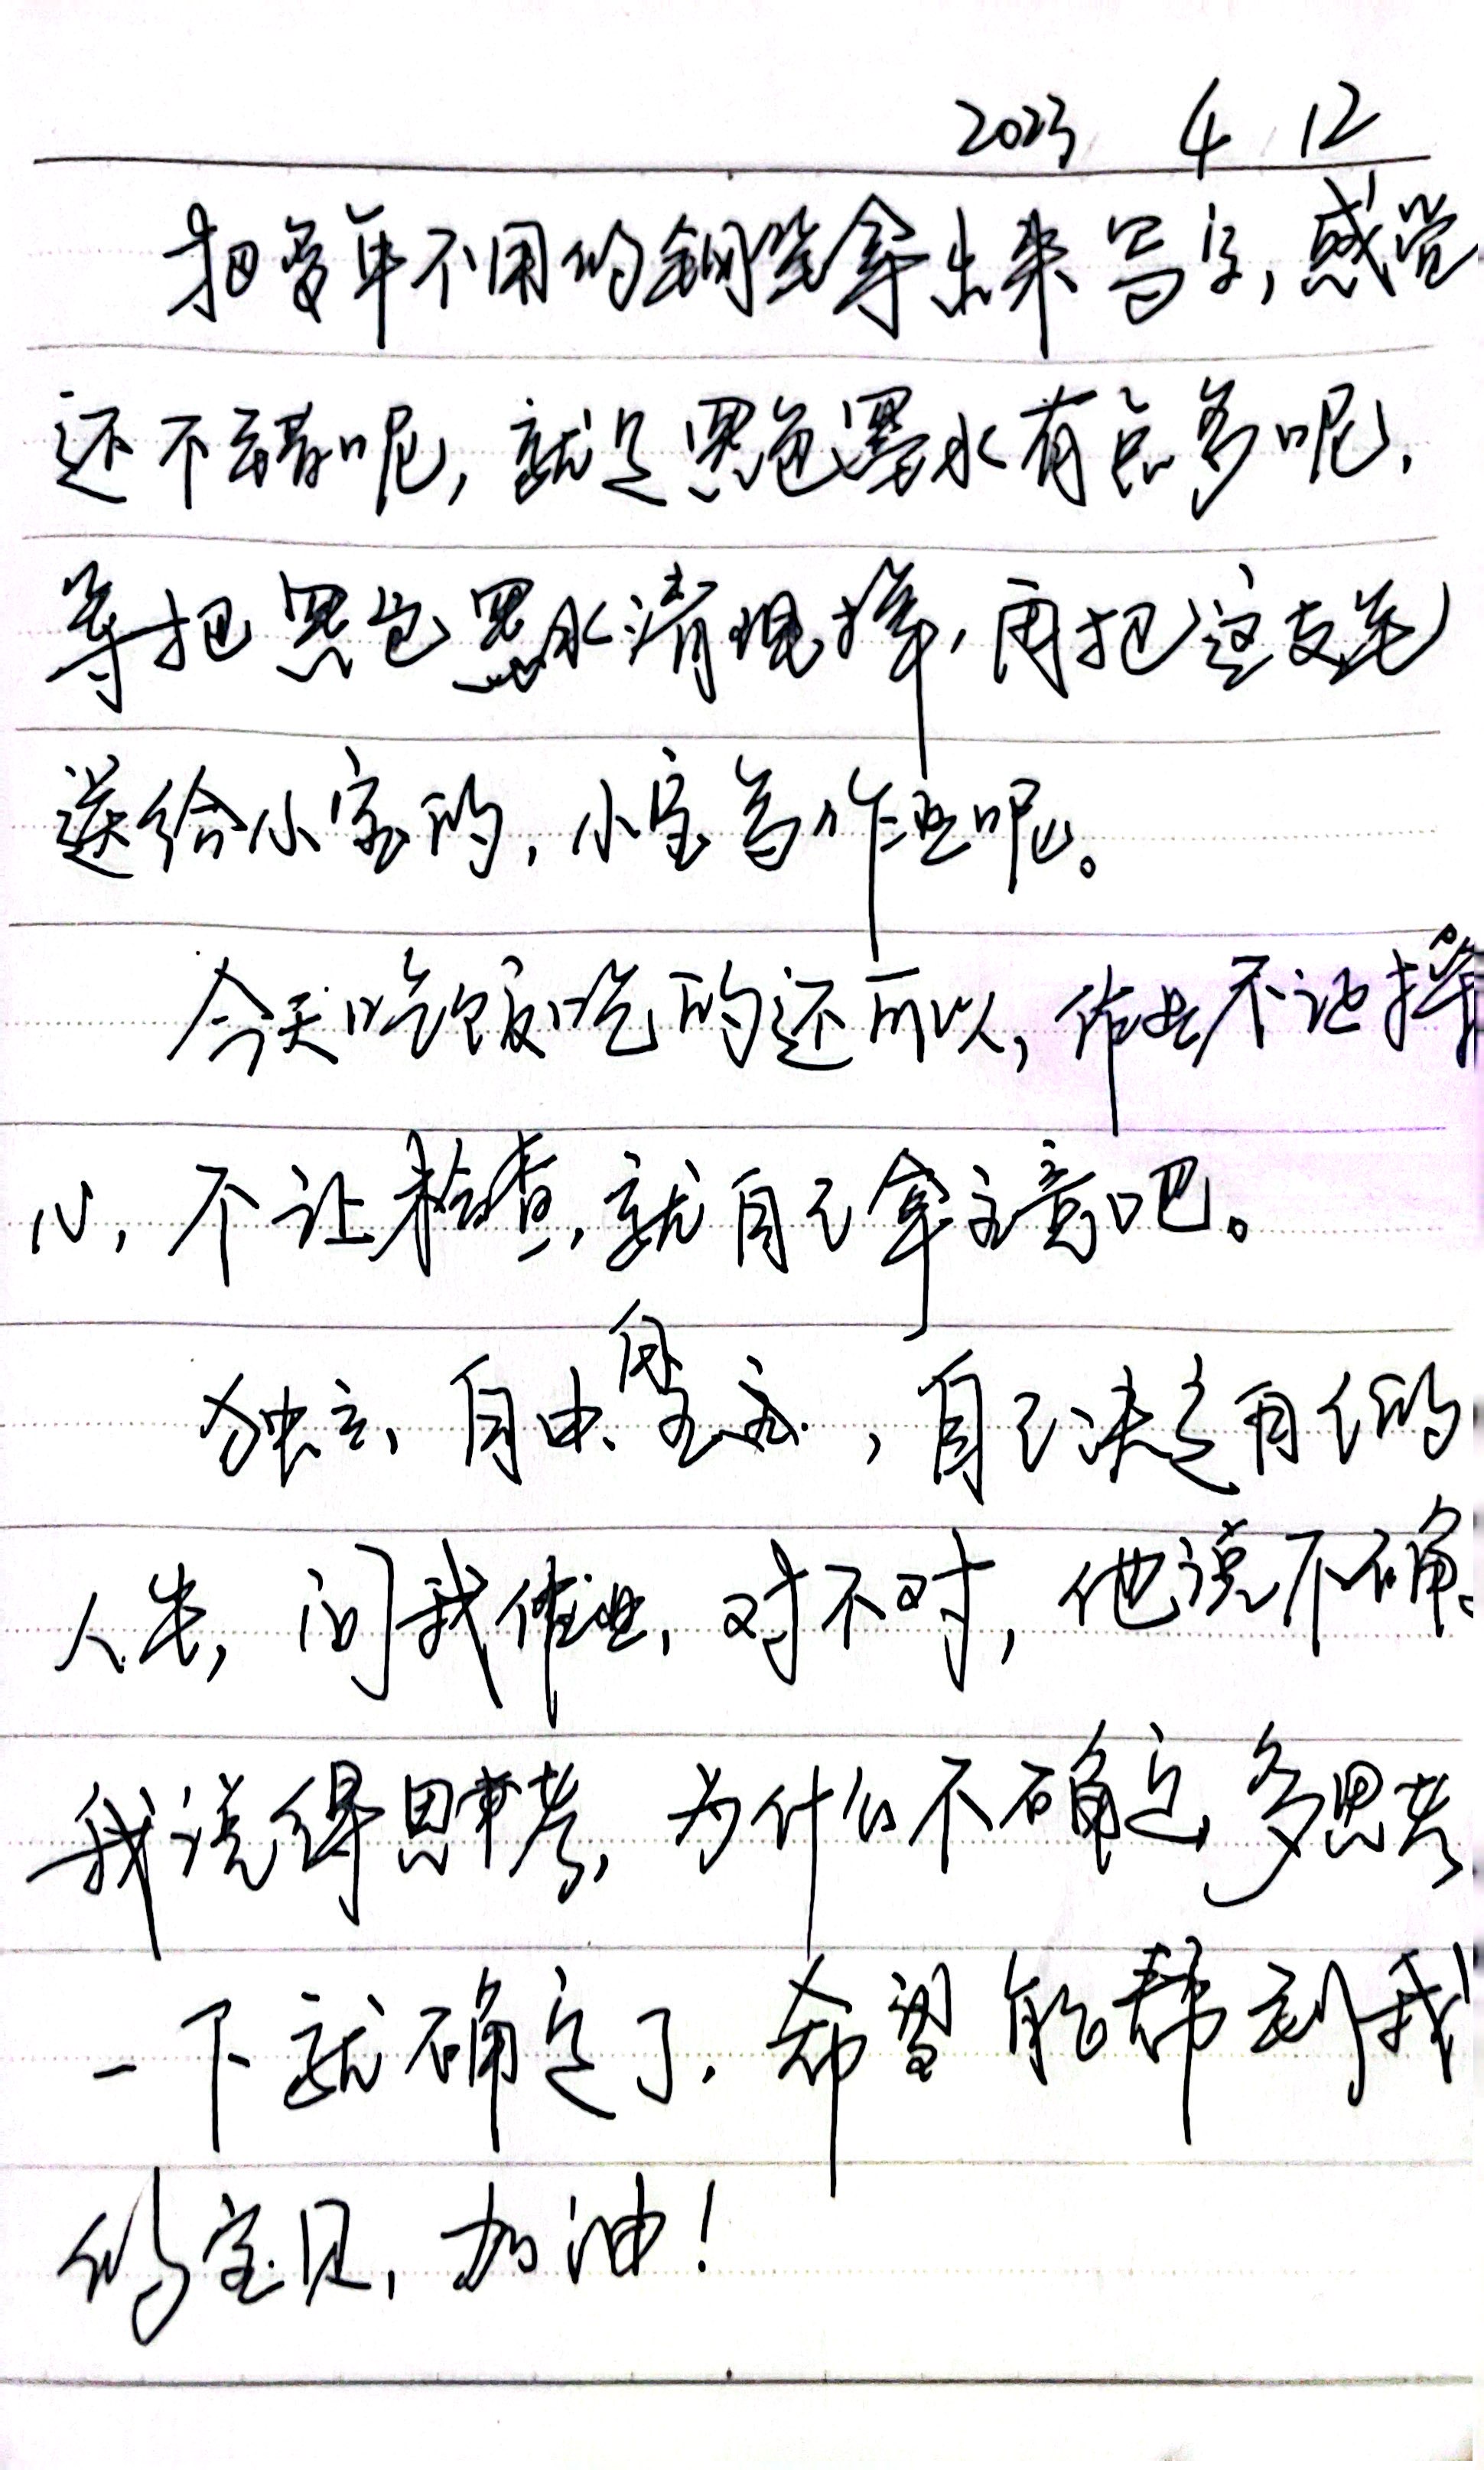 2023 4 12
把多年不用的钢笔拿出来写字,感觉
还不错呢,就是黑色墨水有点多呢,
等把黑色墨水清理掉,再把这支笔
送给小宝的,小宝写作业呢。
今天吃饭吃的还可以,作业不让操
心,不让检查,就自己拿主意吧。
独立、自由、,自己决定自己的
人生,问我作业,对不对,他说不确。
我说得思考,为什么不确定,多思考
一下就确定了,希望能帮到我
的宝贝,加油!